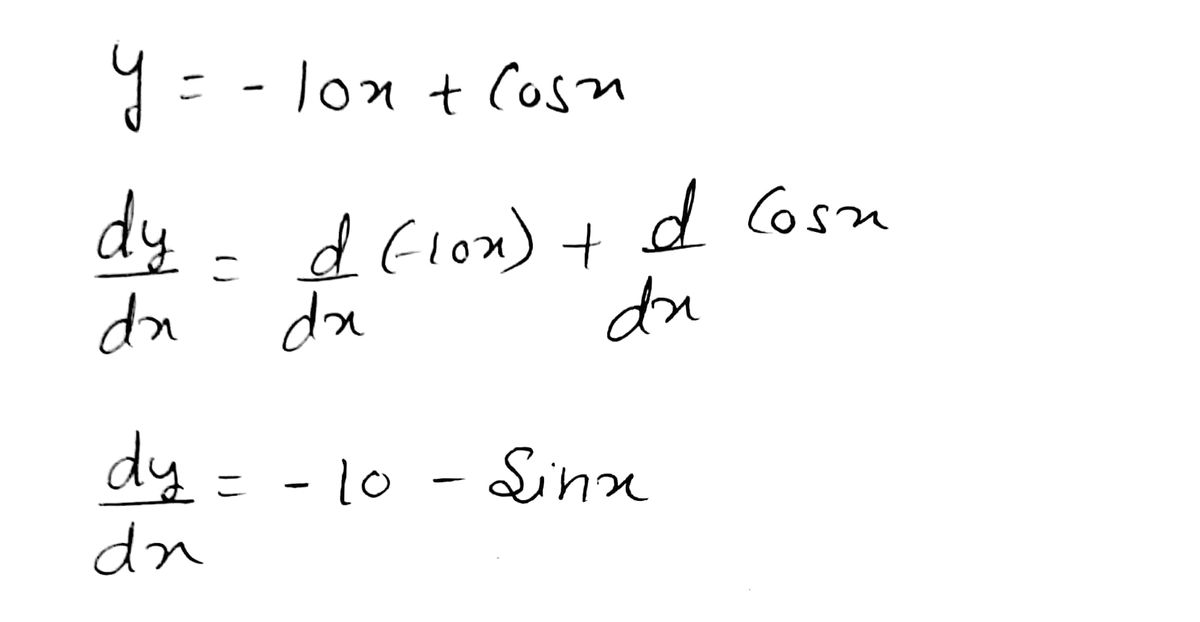 y = -10x + Cosx
dy/dx = d/dx (-10x) + d/dx Cosx
dy/dx = -10 - Sinx